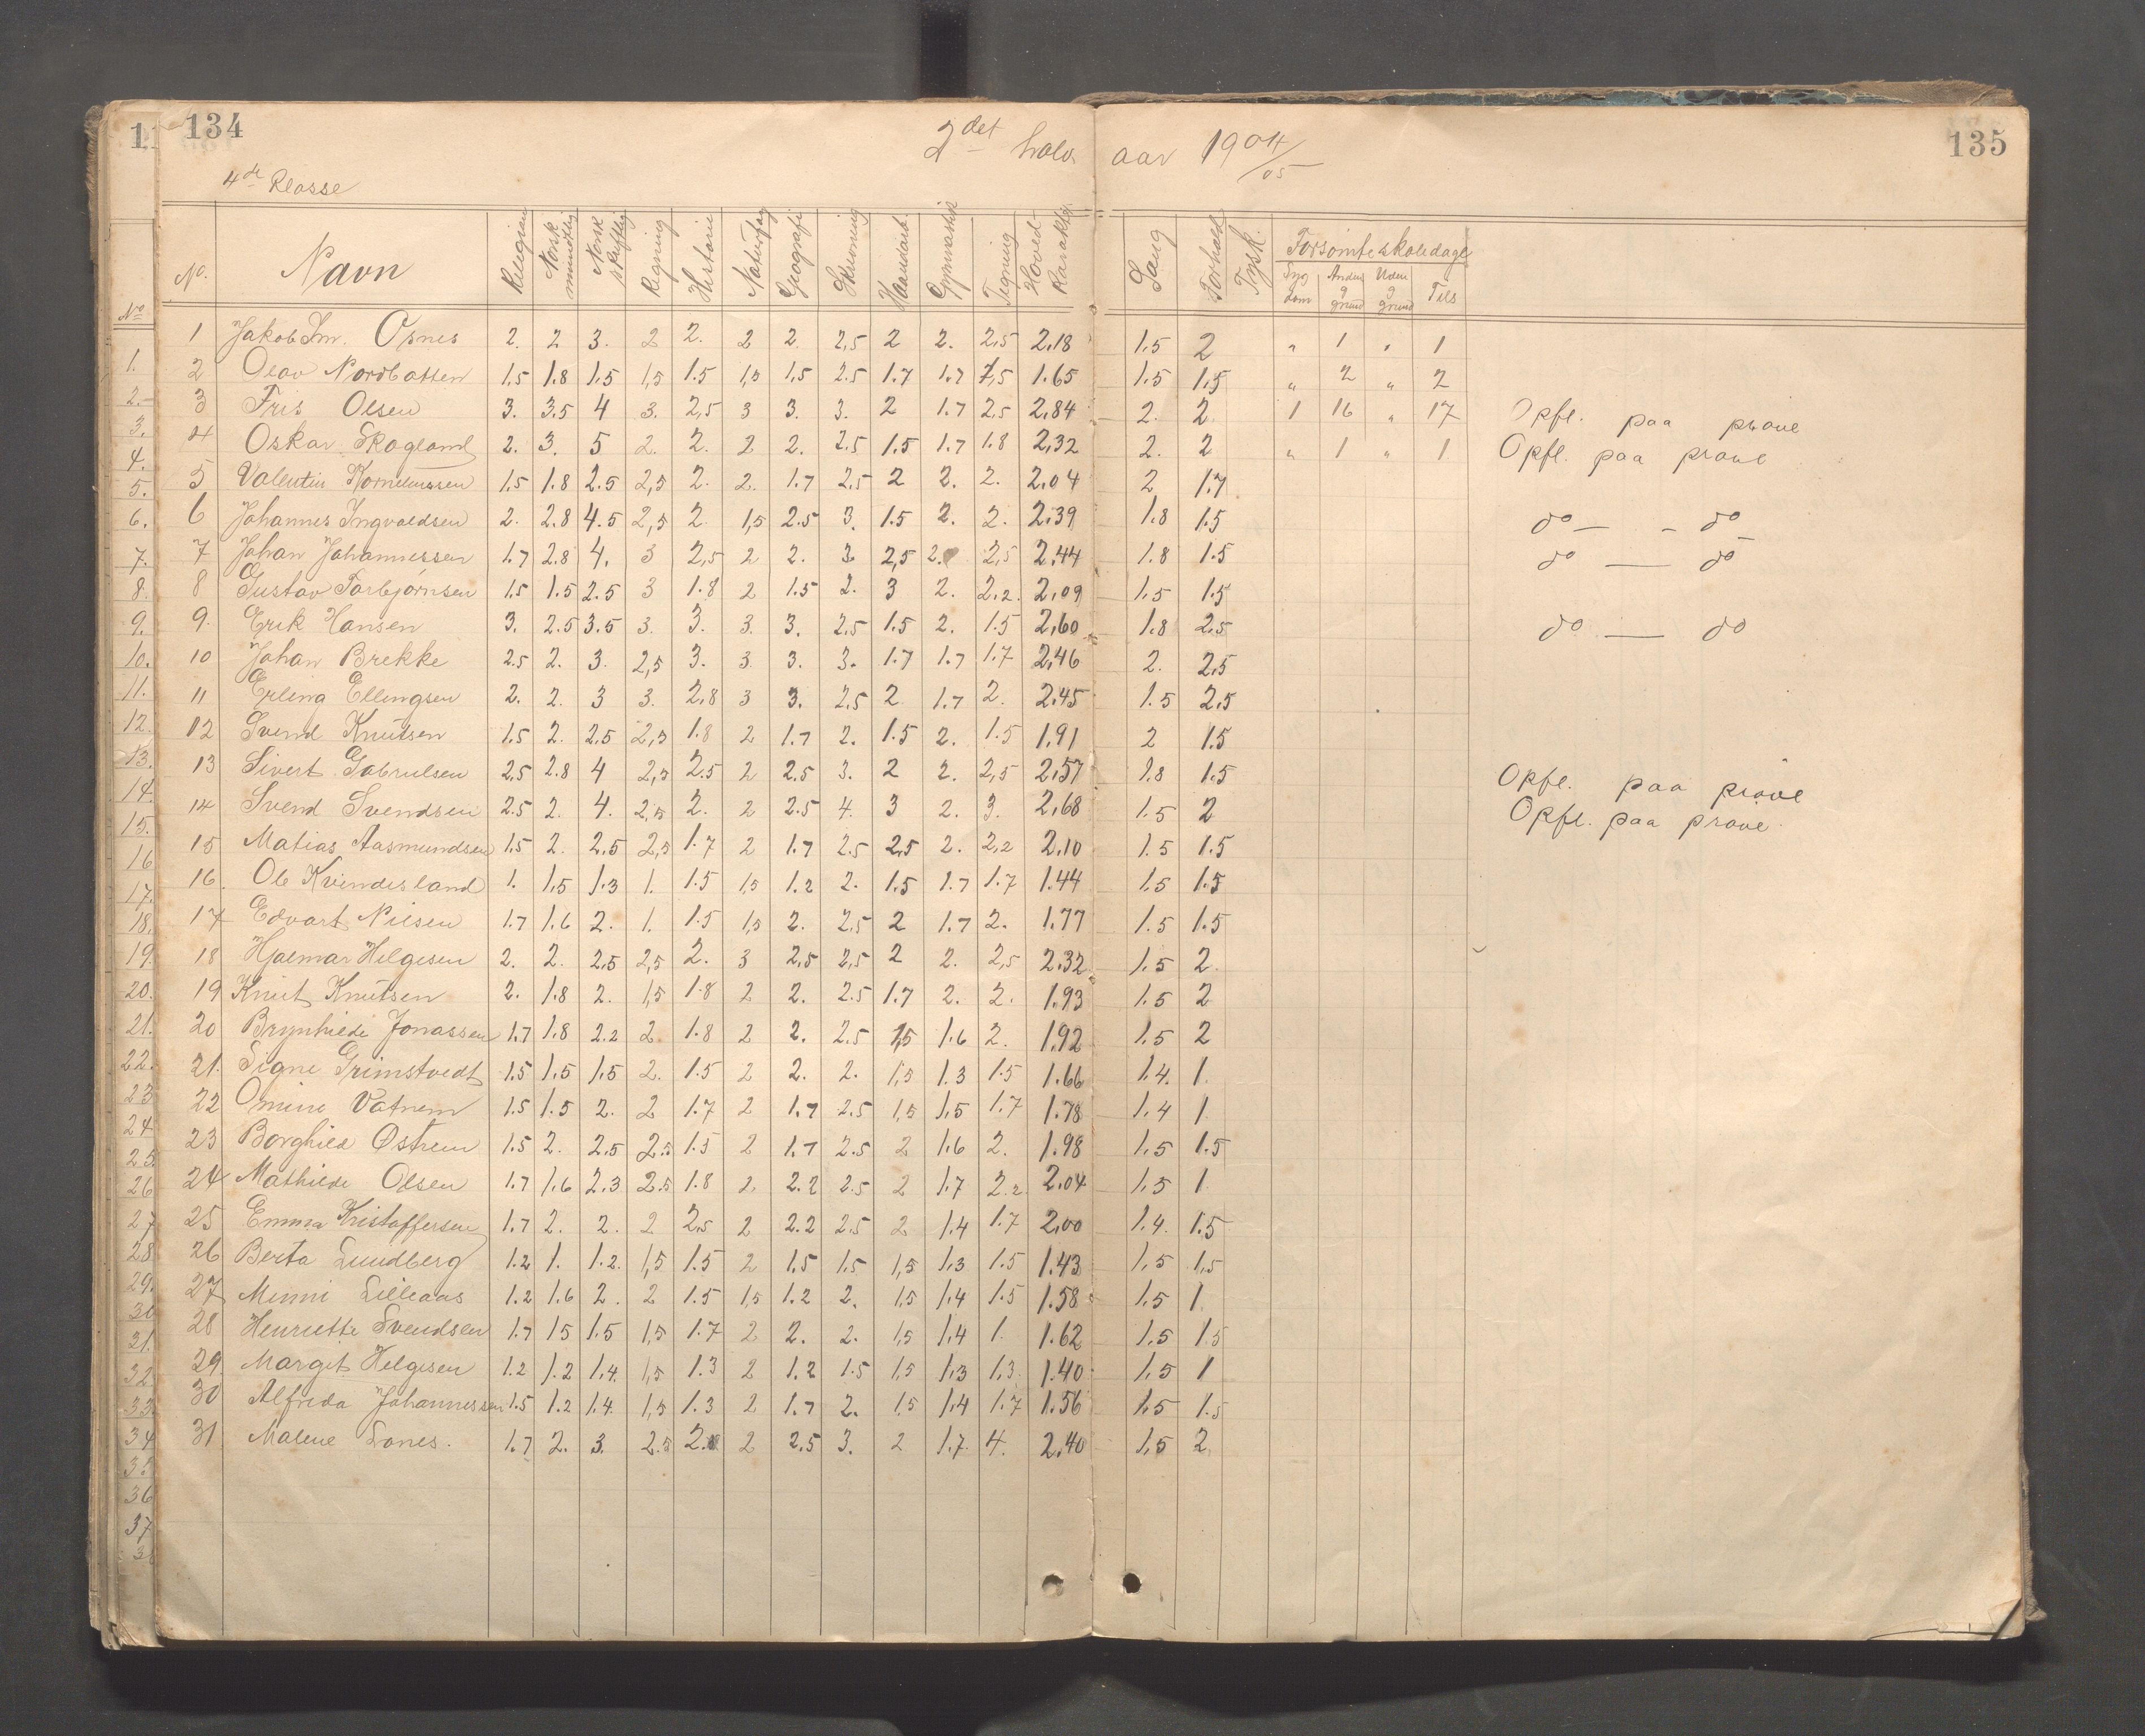 134
135
2det halv aar 1904/05
4de Klasse
No. Navn Religion Norsk mundtlig Norsk skriftlig Regning Historie Naturfag Geografi Skrivning Haandarb. Gymnastik Tegning Hoved Karakter Sang Forhold Tysk. Forsømte skoledage
Syg dom Anden g grund Uden g grund Tils
1 Jakob Im. Osnes 2. 2 3. 2 2. 2 2. 2,5 2 2. 2,5 2.18 1.5 2 " 1 " 1
2 Olav Nordbotten 1,5 1.8 1.5 1,5 1.5 1,5 1,5 2.5 1.7 1.7 1,5 1.65 1.5 1.5 " 2 " 2
3 Fris Olsen 3. 3.5 4 3. 2,5 3 3. 3. 2 1.7 2.5 2.84 2. 2. 1 16 " 17 Opfl. paa prøve
4 Oskar Skogland 2. 3. 5 2. 2. 2 2. 2.5 1.5 1.7 1.8 2.32 2. 2 " 1 " 1 Opfl. paa prøve
5 Valentin Korneliussen 1,5 1.8 2.5 2,5 2. 2. 1.7 2.5 2 2. 2. 2.04 2 1.7
6 Johannes Ingvaldsen 2. 2.8 4.5 2,5 2. 1,5 2.5 3. 1.5 2. 2. 2.39 1.8 1.5 do — - do
7 Johan Johannessen 1.7 2.8 4. 3 2,5 2 2. 3 2,5 2. 2,5 2.44 1.8 1.5 do — do
8 Gustav Torbjørnsen 1.5 1.5 2.5 3 1.8 2 1.5 2. 3 2. 2.2. 2.09 1.5 1.5
9. Erik Hansen 3. 2.5 3.5 3. 3. 3. 3. 2.5 1.5 2. 1.5 2,60 1.8 2.5 do — do
10 Johan Brekke 2.5 2. 3. 2,5 3. 3. 3. 3. 1.7 1.7 1.7 2.46 2. 2.5
11 Erling Ellingsen 2. 2. 3 3. 2,8 3 3. 2.5 2 1.7 2. 2.45 1.5 2.5
12 Svend Knutsen 1.5 2. 2.5 2,5 1.8 2 1.7 2. 1.5 2. 1.5 1.91 2 1.5
13 Sivert Gabrielsen 2.5 2.8 4 2,5 2.5 2 2.5 3. 2 2. 2,5 2.57 1.8 1.5 Opfl. paa prøve
14 Svend Svendsen 2.5 2. 4. 2,5 2. 2 2.5 4. 3 2. 3. 2.68 1.5 2 Opfl. paa prøve
15 Matias Aasmundsen 1.5 2. 2.5 2,5 1.7 2 1.7 2.5 2.5 2. 2.2 2.10 1.5 1.5
16. Ole Kvindesland 1. 1.5 1.3 1. 1.5 1,5 1.2 2. 1.5 1.7 1.7 1.44 1.5 1.5
17 Edvart Nilsen 1.7 1.6 2. 1. 1.5 1,5 2. 2.5 2 1.7 2. 1.77 1.5 1.5
18 Hjalmar Helgesen 2. 2. 2.5 2,5 2. 3 2.5 2,5 2 2. 2,5 2.32 1.5 2.
19 Knut Knutsen 2. 1.8 2. 1,5 1.8 2 2. 2.5 1.7 2. 2. 1.93 1.5 2
20 Brynhilde Jonassen 1.7 1.8 2.2 2 1.8 2 2. 2.5 1,5 1.6 2. 1.92 1.5 2
21. Signe Grimstvedt 1.5 1.5 1.5 2. 1.5 2 2. 2. 1,5 1.3 1.5 1.66 1.4. 1.
22 Omine Vatnem 1.5 1.5 2. 2 1.7 2 1.7 2.5 1,5 1.5 1.7 1.78 1.4 1
23 Borghild Østrem 1.5 2. 2.5 2.5 1.5 2 1.7 2.5 2 1.6 2. 1.98 1.5 1.5
24 Mathilde Olsen 1.7 1.6 2.3 2.5 1.8 2. 2.2 2.5 2 1.7 2.2 2.04 1.5 1
25 Emma Kristoffersen 1.7 2. 2. 2 2.5 2 2.2 2.5 2 1.4 1.7 2.00 1.4. 1.5
26 Berta Lundberg 1.2 1. 1.2. 1,5 1.5 2 1.5 1.5 1,5 1.3 1.5 1.43 1.5 1.5
27 Minni Lilleaas 1.2 1.6 2. 2 1.5 1,5 1.2 2. 1,5 1.4 1.5 1.58 1.5 1.
28 Henriette Svendsen 1.7 15 1.5 1,5 1.7 2 2. 2. 1,5 1.4 1. 1.62 1.5 1.5
29 Margit Helgesen 1.2 1.2 1.4. 1,5 1.3 2 1.2 1.5 1,5 1.3 1.3. 1.40 1.5 1
30 Alfrida Johannessen 1.5 1.2 1.4. 1,5 1.3 2 1.7 2. 1,5 1.4 1.7 1.56 1.5 1.5
31 Malene Lones. 1.7 2. 3. 2.5 2. 2 2.5 3. 2 1.7. 4. 2.40 1.5 2.